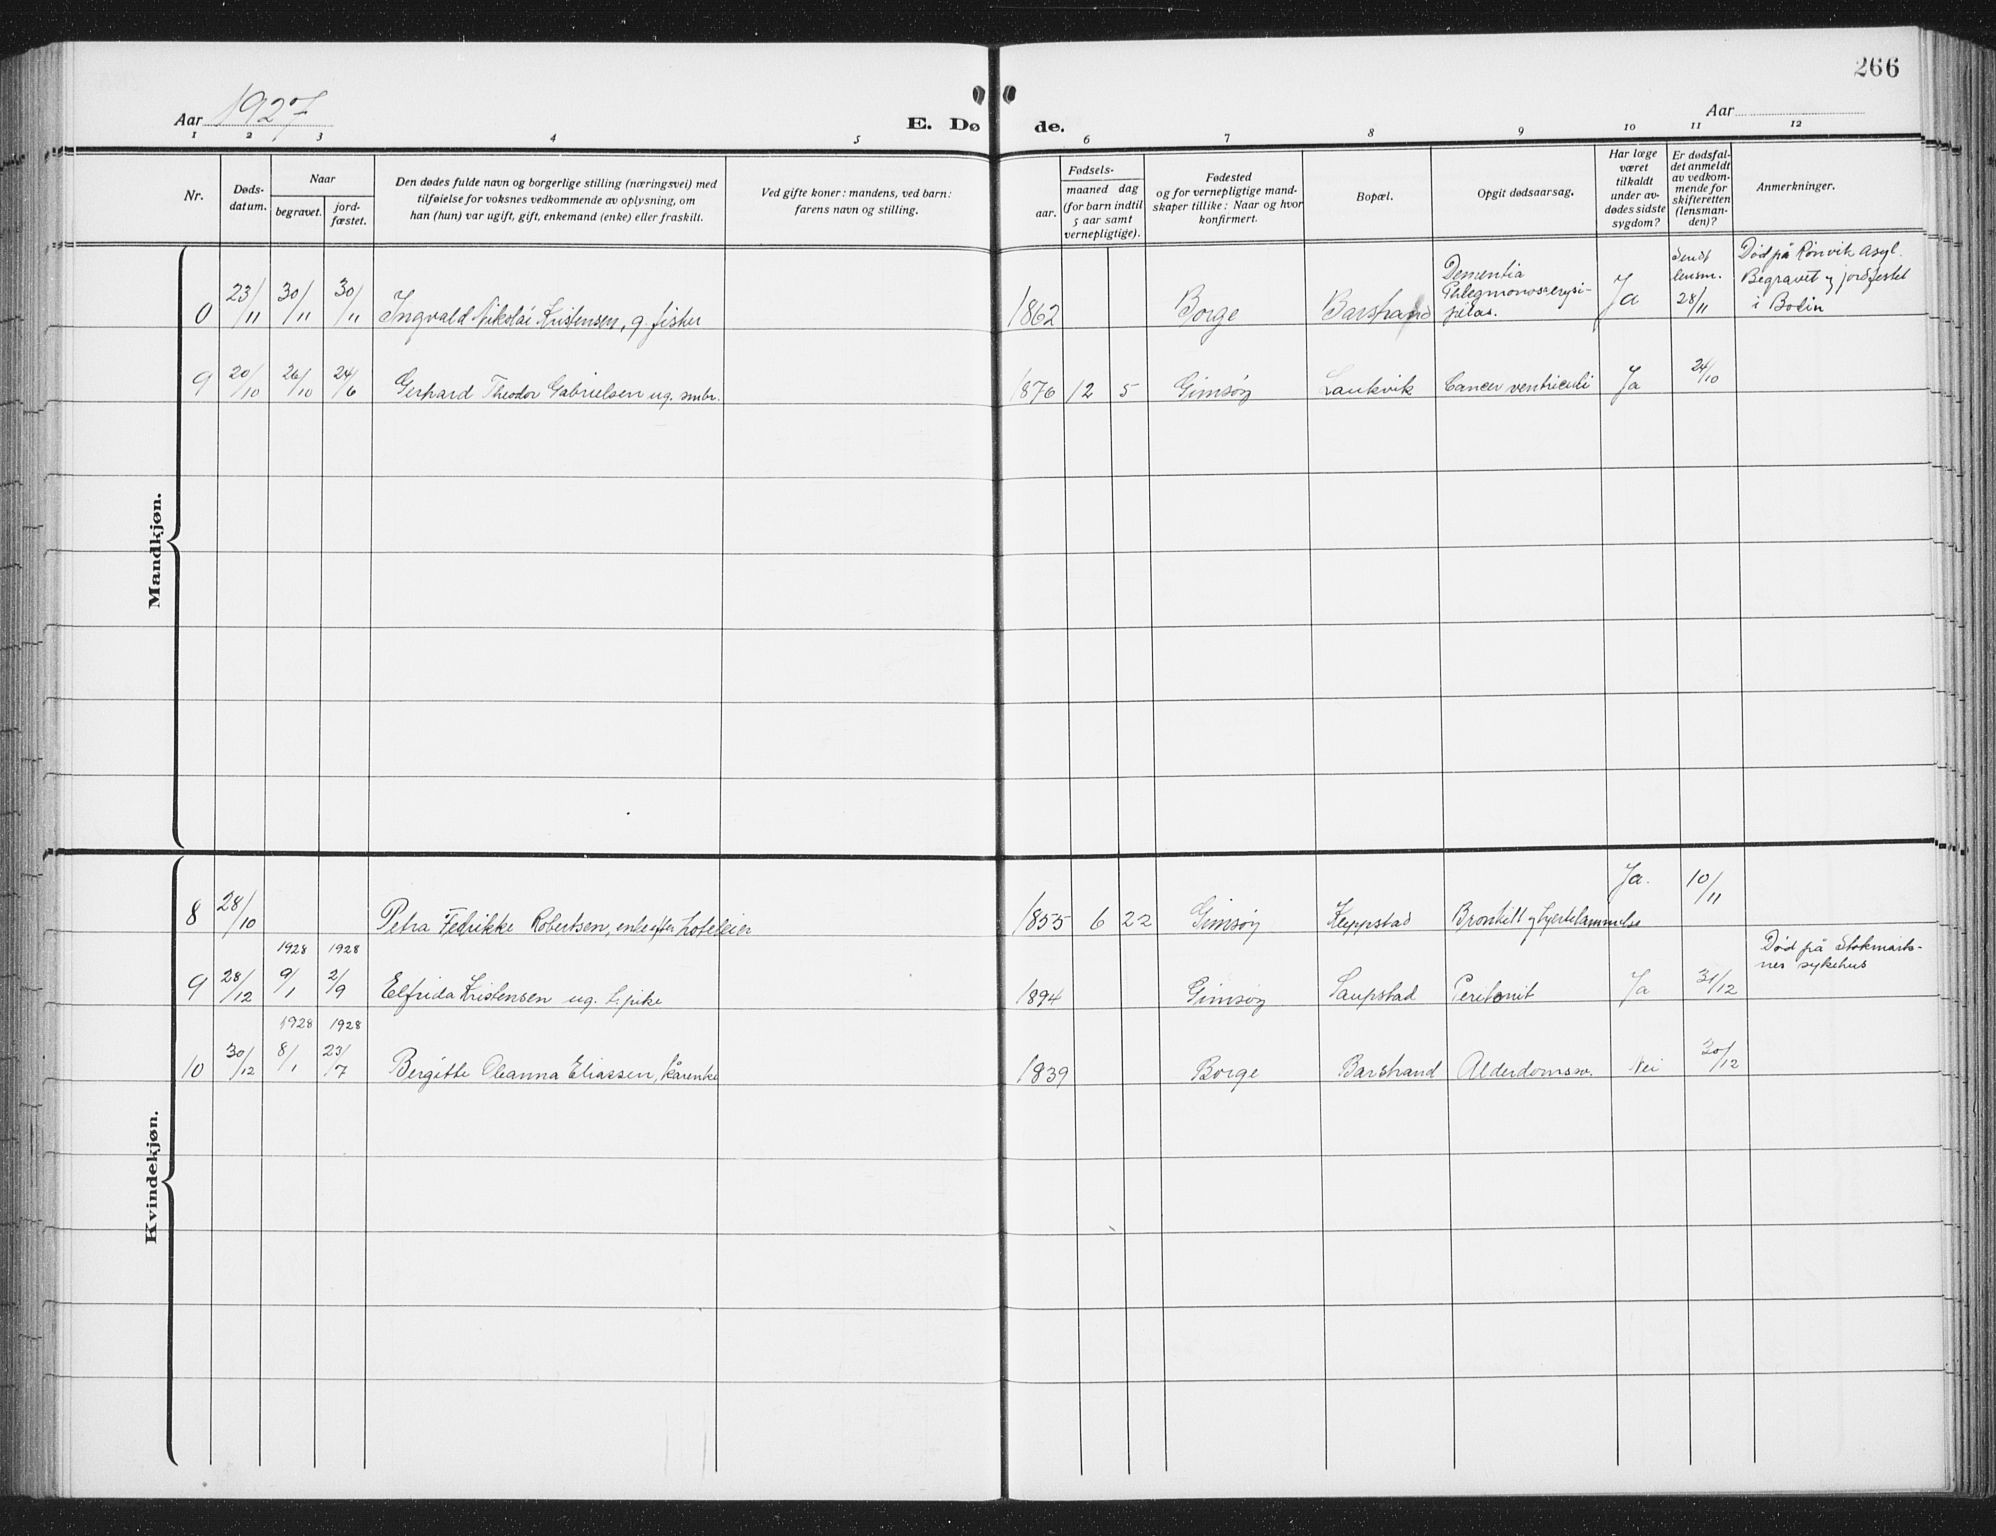 266
Aar 1927
E. Døde.
Aar
1 2 3 4 5 6 7 8 9 10 11 12
Nr.
Døds-
datum.
Naar
begravet.
jord-
fæstet.
Den dødes fulde navn og borgerlige stilling (næringsvei) med
tilføielse for voksnes vedkommende av oplysning, om
han (hun) var ugift, gift, enkemand (enke) eller fraskilt.
Ved gifte koner: mandens, ved barn:
farens navn og stilling.
Fødsels-
aar.
maaned dag
(for barn indtil
5 aar samt
vernepligtige).
Fødested
og for vernepligtige mand-
skaper tillike: Naar og hvor
konfirmert.
Bopæl.
Opgit dødsaarsag.
Har læge
været
tilkaldt
under av-
dødes sidste
sygdom?
Er dødsfal-
det anmeldt
av vedkom-
mende for
skifteretten
(lensman-
den)?
Anmerkninger.
Mandkjøn.
0 23/11 30/11 30/11 Ingvald Nikolai Kristensen, g. fisker 1862 Borge Barstrand
Dementia
Phlegmonoserysi-
pelas.
Ja
sendt
lensm.
28/11
Død på Rønvik Asyl.
Begravet og jordfestet
i Bodin
9 20/10 26/10 24/6 Gerhard Theodor Gabrielsen ug. smbr. 1876 12 5 Gimsøy Laukvik Cancer ventriculi Ja 24/10
Kvindekjøn.
8 28/10 Petra Fedrikke Robertsen, enke efter 1855 6 22 Gimsøy Kleppstad Bronkitt og hjertelammelse Ja. 10/11
1928 1928
9 28/12 9/1 2/9 Elfrida Kristensen ug. t. pike 1894 Gimsøy Saupstad Peritonit Ja 31/12
Død på Stokmark-
nes sykehus
1928 1928
10 30/12 8/1 23/7 Bergitte Oleanna Eliassen, kårenke 1839 Borge Barstrand Alderdomssv. Nei 30/12